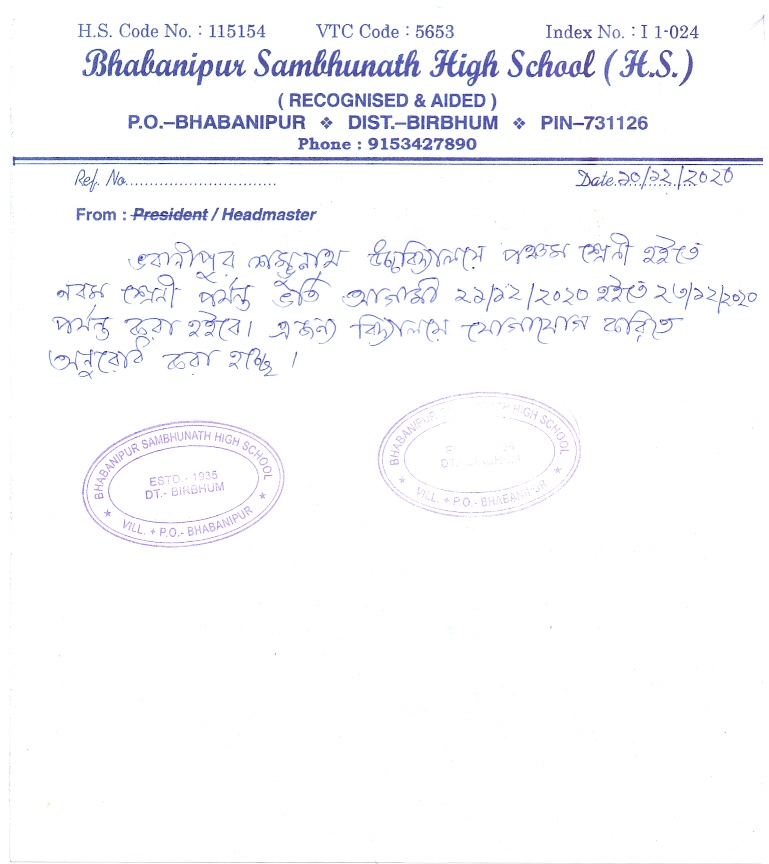 H.S. Code No. : 115154 VTC Code : 5653 Index No. : I 1-024
Bhabanipur Sambhunath High School (H.S.)
( RECOGNISED & AIDED )
P.O.–BHABANIPUR ❖ DIST.–BIRBHUM ❖ PIN–731126
Phone : 9153427890
Ref. No.............................. Date.১০/১২/২০২০
From : President / Headmaster
ভবানীপুর শম্ভুনাথ উচ্চবিদ্যালয়ে পঞ্চম শ্রেনী হইতে
নবম শ্রেনী পর্যন্ত ভর্তি আগামী ২১/১২/২০২০ হইতে ২৩/১২/২০২০
পর্যন্ত করা হইবে। এজন্য বিদ্যালয়ে যোগাযোগ করিতে
অনুরোধ করা হচ্ছে।
BHABANIPUR SAMBHUNATH HIGH SCHOOL
ESTD.- 1935
DT.- BIRBHUM
★ VILL. + P.O.- BHABANIPUR ★
BHABANIPUR HIGH SCHOOL
★ VILL. + P.O.- BHABANIPUR ★